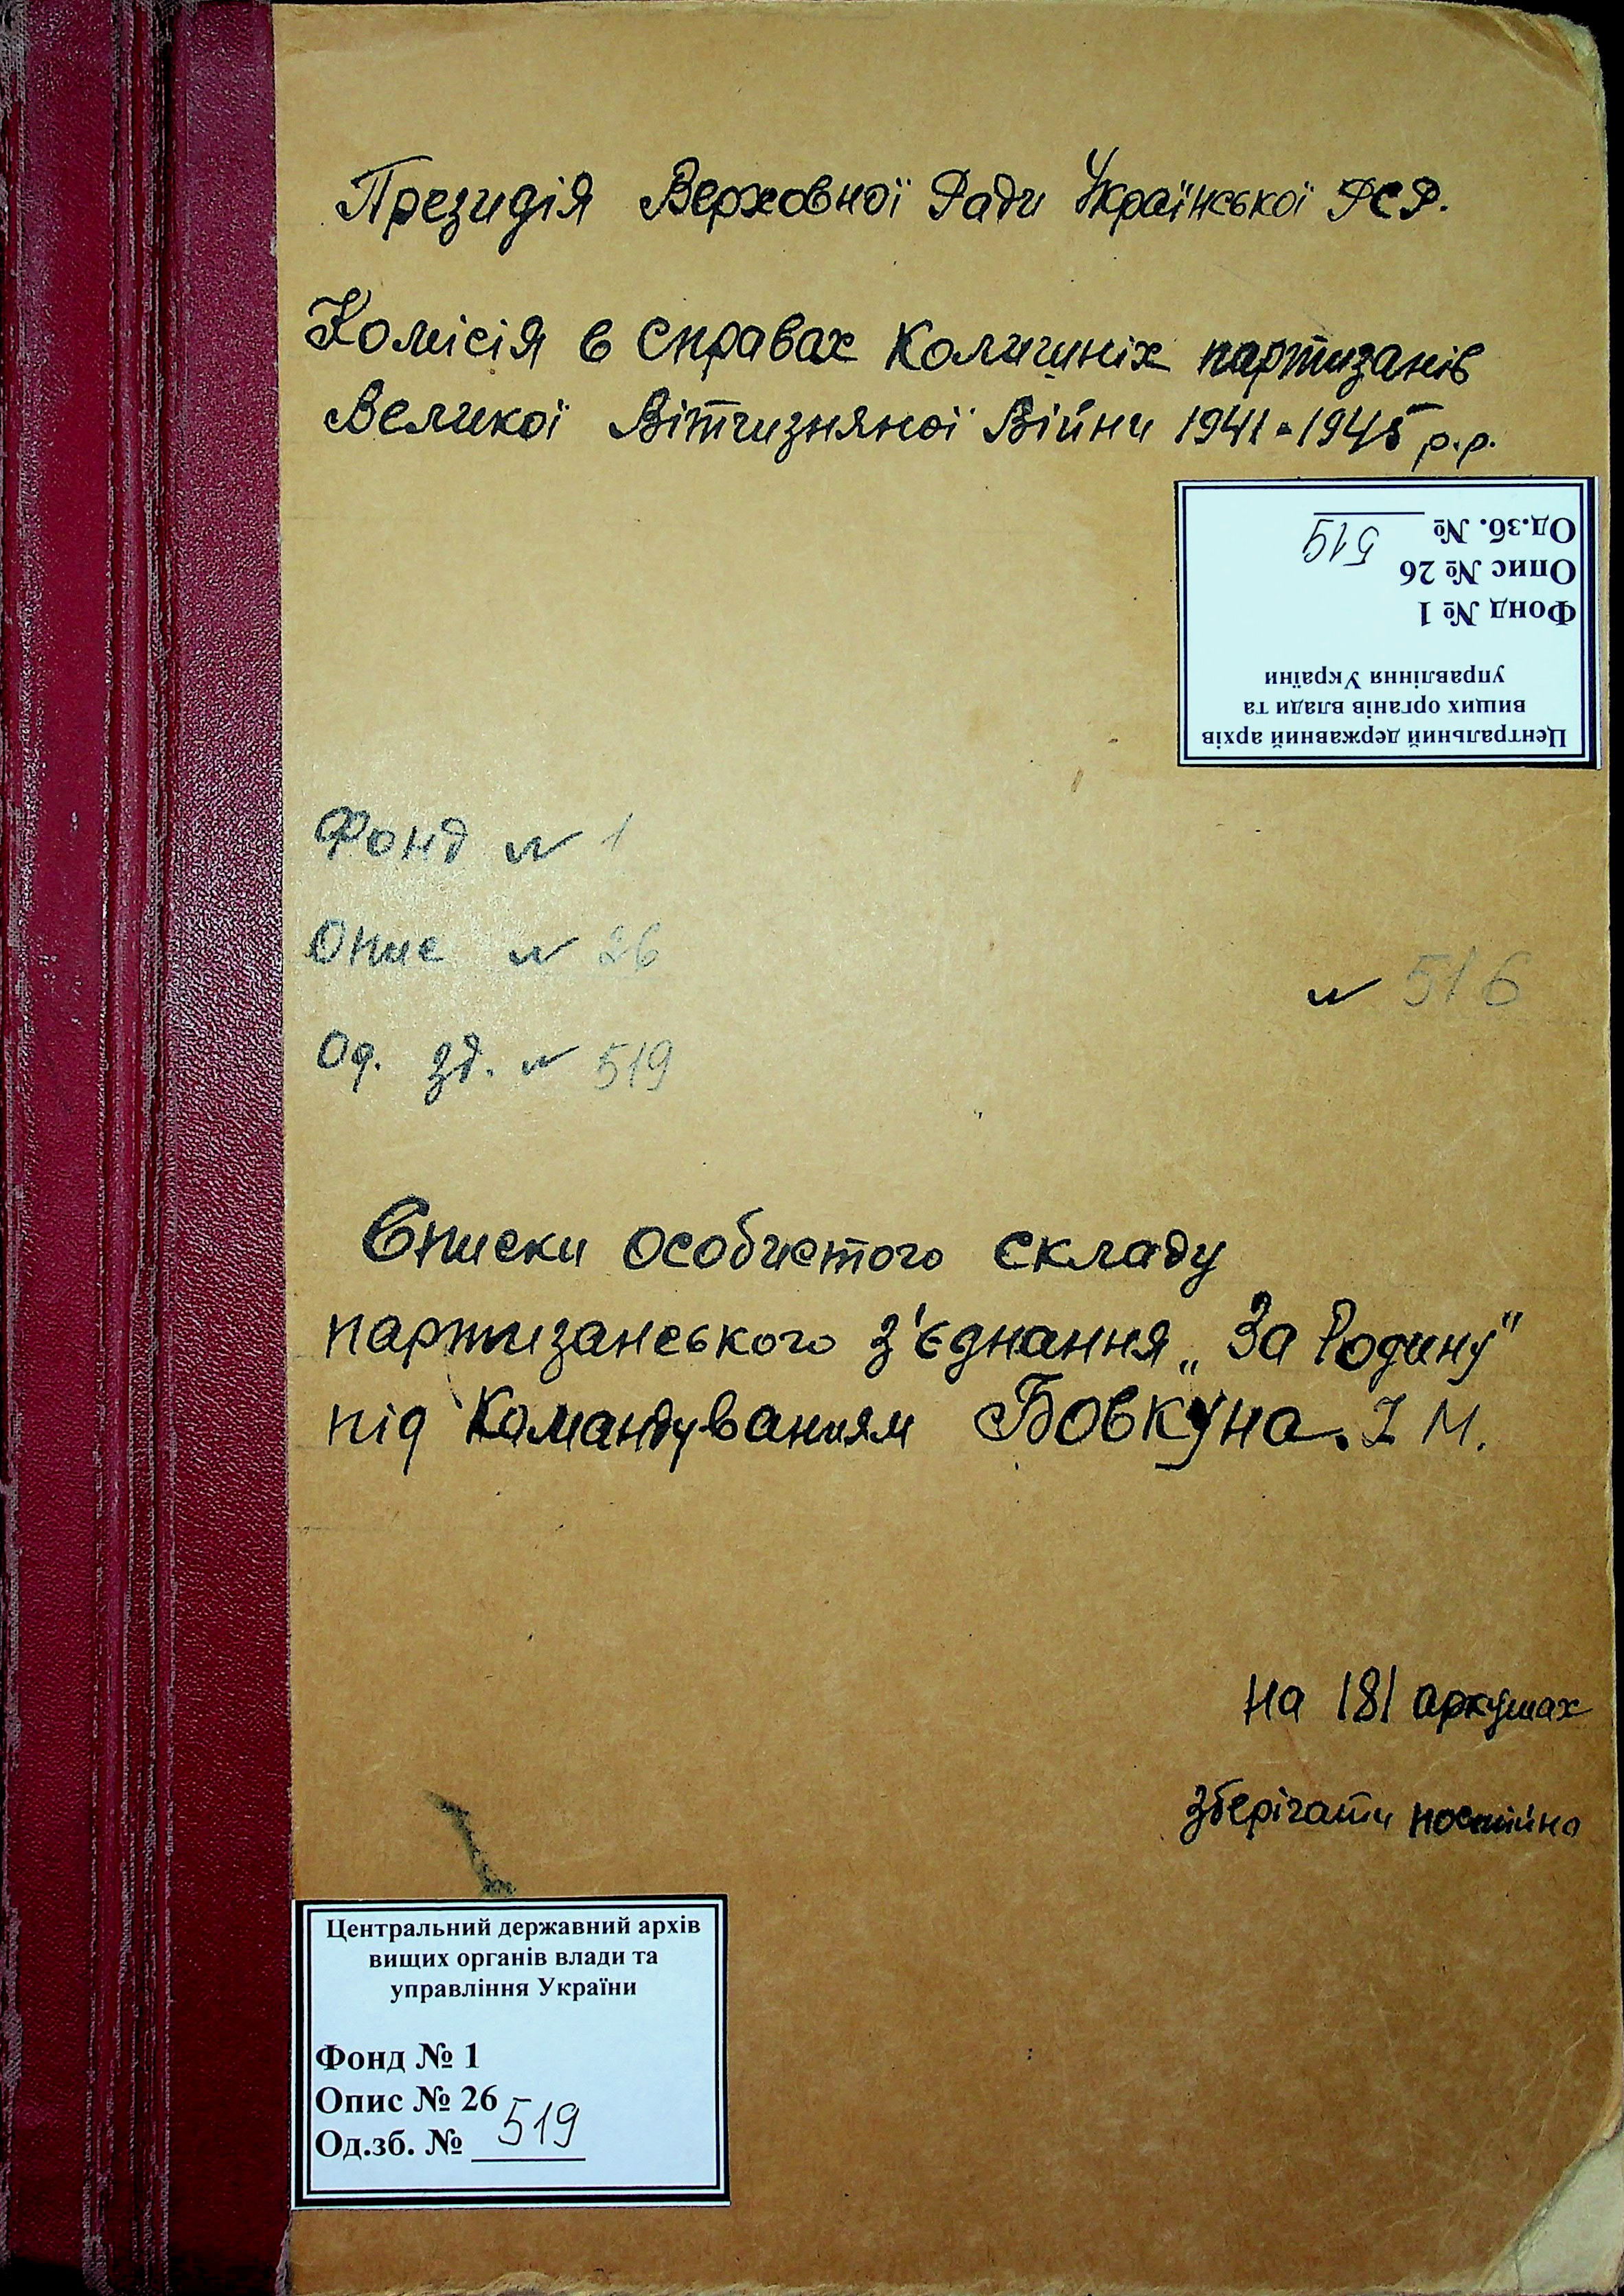 Президія Верховної Ради Української РСР.
Комісія в справах колишніх партизанів
Великої Вітчизняної Війни 1941-1945 р.р.
Центральний державний архів
вищих органів влади та
управління України
Фонд № 1
Опис № 26
Од.зб. № 519
Фонд № 1
Опис № 26
№ 516
Од. зб. № 519
Списки особистого складу
партизанського з'єднання „За Родину"
під командуванням Бовкуна. І М.
на 181 аркушах
зберігати постійно
Центральний державний архів
вищих органів влади та
управління України
Фонд № 1
Опис № 26
Од.зб. № 519